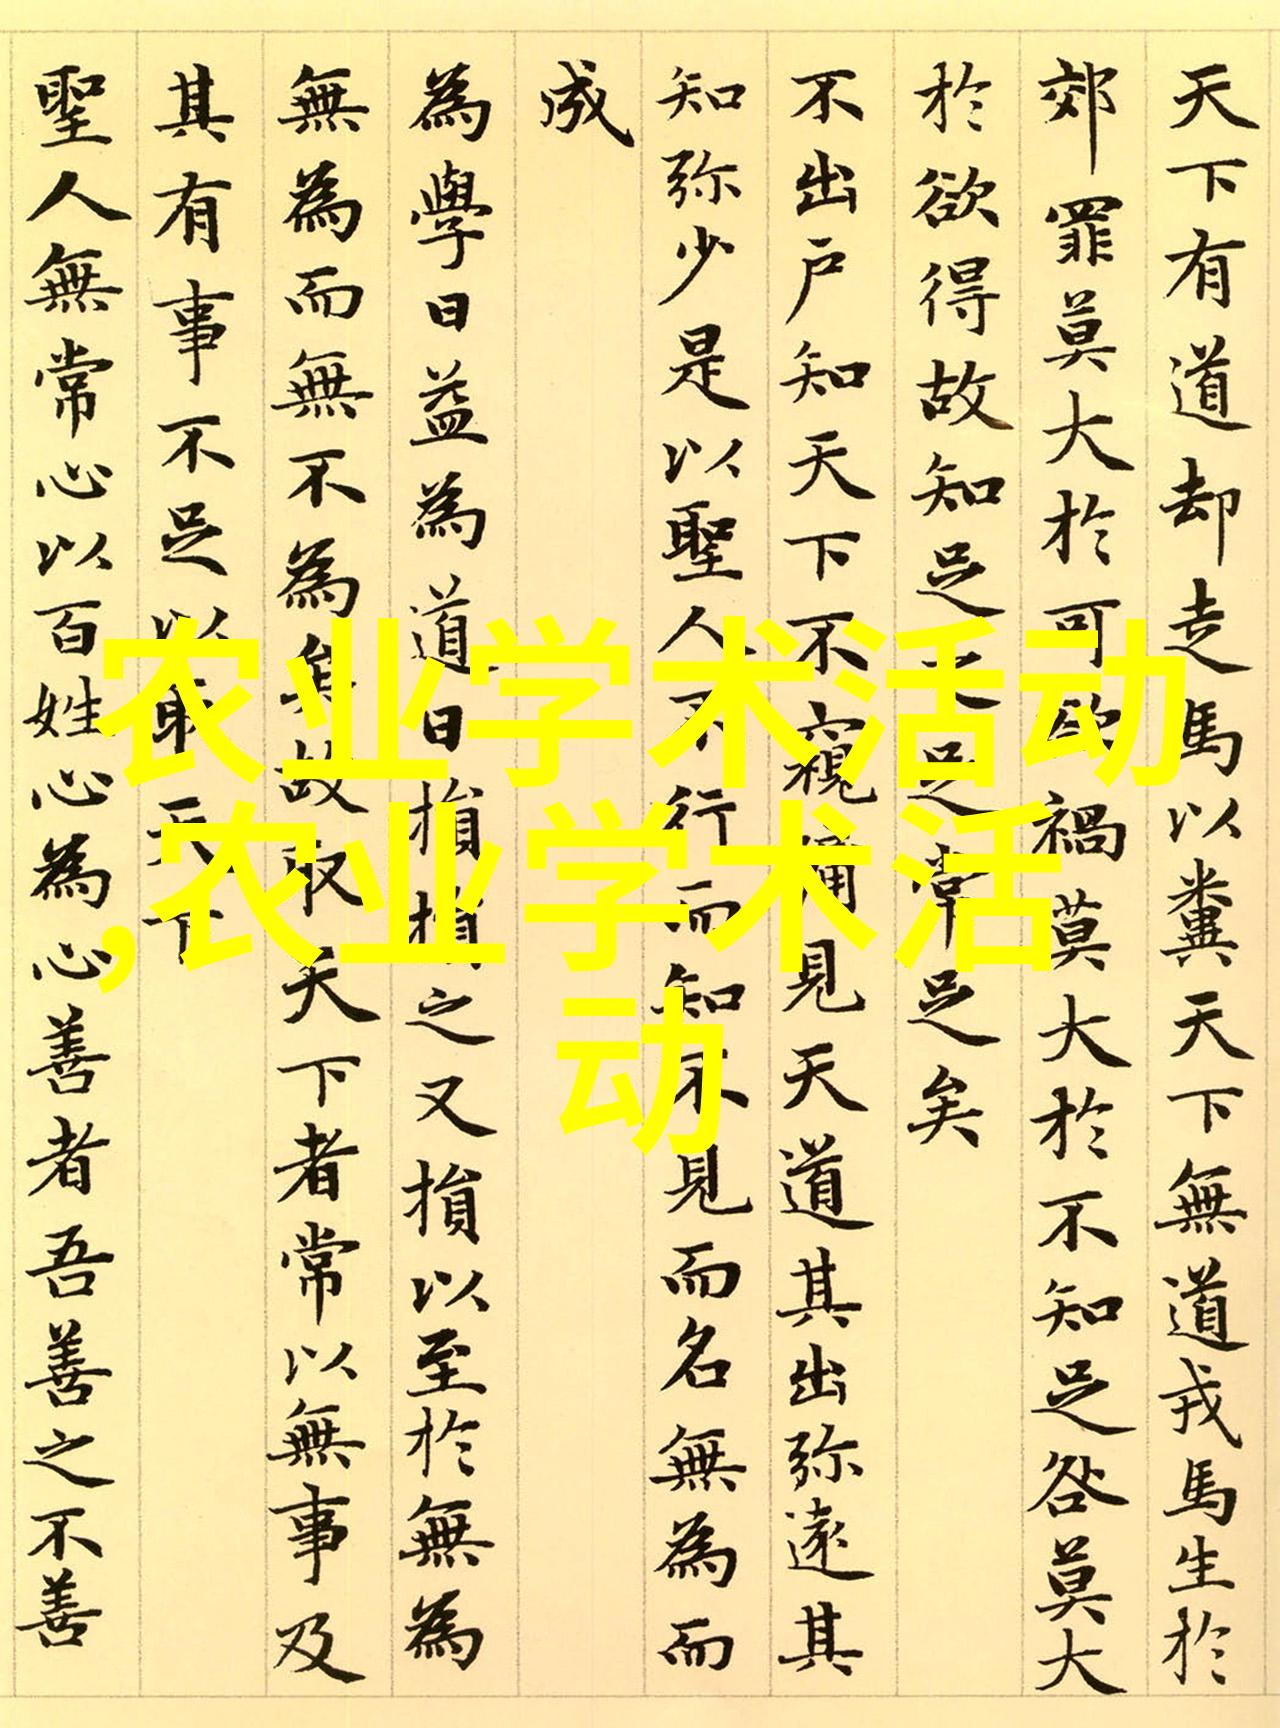 天下有道却走馬以糞天下無道戎馬生於
郊罪莫大於可欲禍莫大於不知足咎莫大
於欲得故知足之足常足矣
不出户知天下不窺牖見天道其出弥遠其
知弥少是以聖人不行而知不見而名無為而
成
為學日益為道日損損之又損以至於無為
無為而無不為矣故取天下者常以無事及
其有事不足以取天下
聖人無常心以百姓心為心善者吾善之不善
农业学术活动
,农业学术活
动